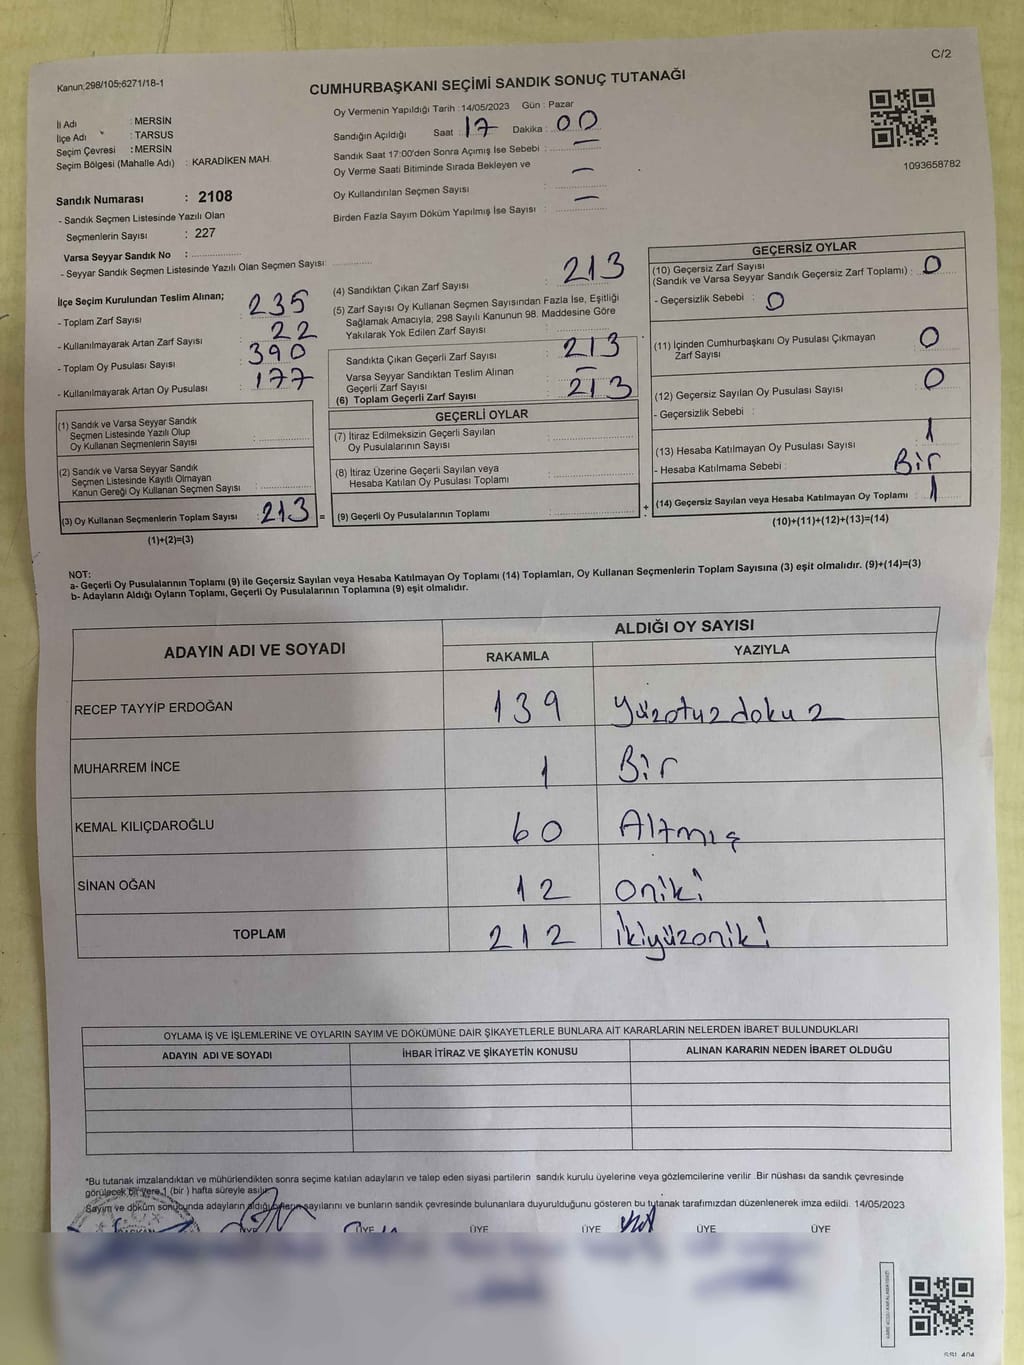 C/2
Kanun:298/105-6271/18-1
CUMHURBAŞKANI SEÇİMİ SANDIK SONUÇ TUTANAĞI
1093658782
İl Adı : MERSİN
İlçe Adı : TARSUS
Seçim Çevresi : MERSİN
Seçim Bölgesi (Mahalle Adı) : KARADİKEN MAH.
Oy Vermenin Yapıldığı Tarih : 14/05/2023 Gün : Pazar
Sandığın Açıldığı Saat : 17 Dakika : 00
Sandık Saat 17:00'den Sonra Açımış İse Sebebi : —
Oy Verme Saati Bitiminde Sırada Bekleyen ve
Oy Kullandırılan Seçmen Sayısı : —
Birden Fazla Sayım Döküm Yapılmış İse Sayısı : —
Sandık Numarası : 2108
- Sandık Seçmen Listesinde Yazılı Olan
Seçmenlerin Sayısı : 227
Varsa Seyyar Sandık No :
- Seyyar Sandık Seçmen Listesinde Yazılı Olan Seçmen Sayısı:
İlçe Seçim Kurulundan Teslim Alınan;
- Toplam Zarf Sayısı : 235
- Kullanılmayarak Artan Zarf Sayısı : 22
- Toplam Oy Pusulası Sayısı : 390
- Kullanılmayarak Artan Oy Pusulası : 177
(1) Sandık ve Varsa Seyyar Sandık
Seçmen Listesinde Yazılı Olup
Oy Kullanan Seçmenlerin Sayısı :
(2) Sandık ve Varsa Seyyar Sandık
Seçmen Listesinde Kayıtlı Olmayan
Kanun Gereği Oy Kullanan Seçmen Sayısı :
(3) Oy Kullanan Seçmenlerin Toplam Sayısı : 213 =
(1)+(2)=(3)
(4) Sandıktan Çıkan Zarf Sayısı : 213
(5) Zarf Sayısı Oy Kullanan Seçmen Sayısından Fazla İse, Eşitliği
Sağlamak Amacıyla; 298 Sayılı Kanunun 98. Maddesine Göre
Yakılarak Yok Edilen Zarf Sayısı :
Sandıkta Çıkan Geçerli Zarf Sayısı : 213
Varsa Seyyar Sandıktan Teslim Alınan
Geçerli Zarf Sayısı : —
(6) Toplam Geçerli Zarf Sayısı : 213
GEÇERLİ OYLAR
(7) İtiraz Edilmeksizin Geçerli Sayılan
Oy Pusulalarının Sayısı :
(8) İtiraz Üzerine Geçerli Sayılan veya
Hesaba Katılan Oy Pusulası Toplamı :
(9) Geçerli Oy Pusulalarının Toplamı : +
GEÇERSİZ OYLAR
(10) Geçersiz Zarf Sayısı
(Sandık ve Varsa Seyyar Sandık Geçersiz Zarf Toplamı) : 0
- Geçersizlik Sebebi : 0
(11) İçinden Cumhurbaşkanı Oy Pusulası Çıkmayan
Zarf Sayısı : 0
(12) Geçersiz Sayılan Oy Pusulası Sayısı : 0
- Geçersizlik Sebebi :
(13) Hesaba Katılmayan Oy Pusulası Sayısı : 1
- Hesaba Katılmama Sebebi : Bir
(14) Geçersiz Sayılan veya Hesaba Katılmayan Oy Toplamı : 1
(10)+(11)+(12)+(13)=(14)
NOT:
a- Geçerli Oy Pusulalarının Toplamı (9) ile Geçersiz Sayılan veya Hesaba Katılmayan Oy Toplamı (14) Toplamları, Oy Kullanan Seçmenlerin Toplam Sayısına (3) eşit olmalıdır. (9)+(14)=(3)
b- Adayların Aldığı Oyların Toplamı, Geçerli Oy Pusulalarının Toplamına (9) eşit olmalıdır.
ADAYIN ADI VE SOYADI
ALDIĞI OY SAYISI
RAKAMLA YAZIYLA
RECEP TAYYİP ERDOĞAN 139 Yüzotuzdokuz
MUHARREM İNCE 1 Bir
KEMAL KILIÇDAROĞLU 60 Altmış
SİNAN OĞAN 12 oniki
TOPLAM 212 ikiyüzoniki
OYLAMA İŞ VE İŞLEMLERİNE VE OYLARIN SAYIM VE DÖKÜMÜNE DAİR ŞİKAYETLERLE BUNLARA AİT KARARLARIN NELERDEN İBARET BULUNDUKLARI
ADAYIN ADI VE SOYADI İHBAR İTİRAZ VE ŞİKAYETİN KONUSU ALINAN KARARIN NEDEN İBARET OLDUĞU
*Bu tutanak imzalandıktan ve mühürlendikten sonra seçime katılan adayların ve talep eden siyasi partilerin sandık kurulu üyelerine veya gözlemcilerine verilir. Bir nüshası da sandık çevresinde
görülecek bir yere 1 (bir ) hafta süreyle asılır.
Sayım ve döküm sonucunda adayların aldığı oyların sayılarını ve bunların sandık çevresinde bulunanlara duyurulduğunu gösteren bu tutanak tarafımızdan düzenlenerek imza edildi. 14/05/2023
BAŞKAN ÜYE ÜYE ÜYE ÜYE ÜYE ÜYE